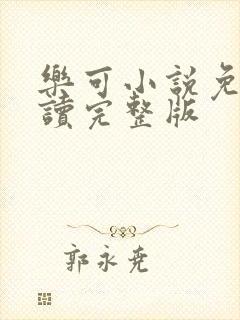 樂可小說免
讀完整版
郭永堯